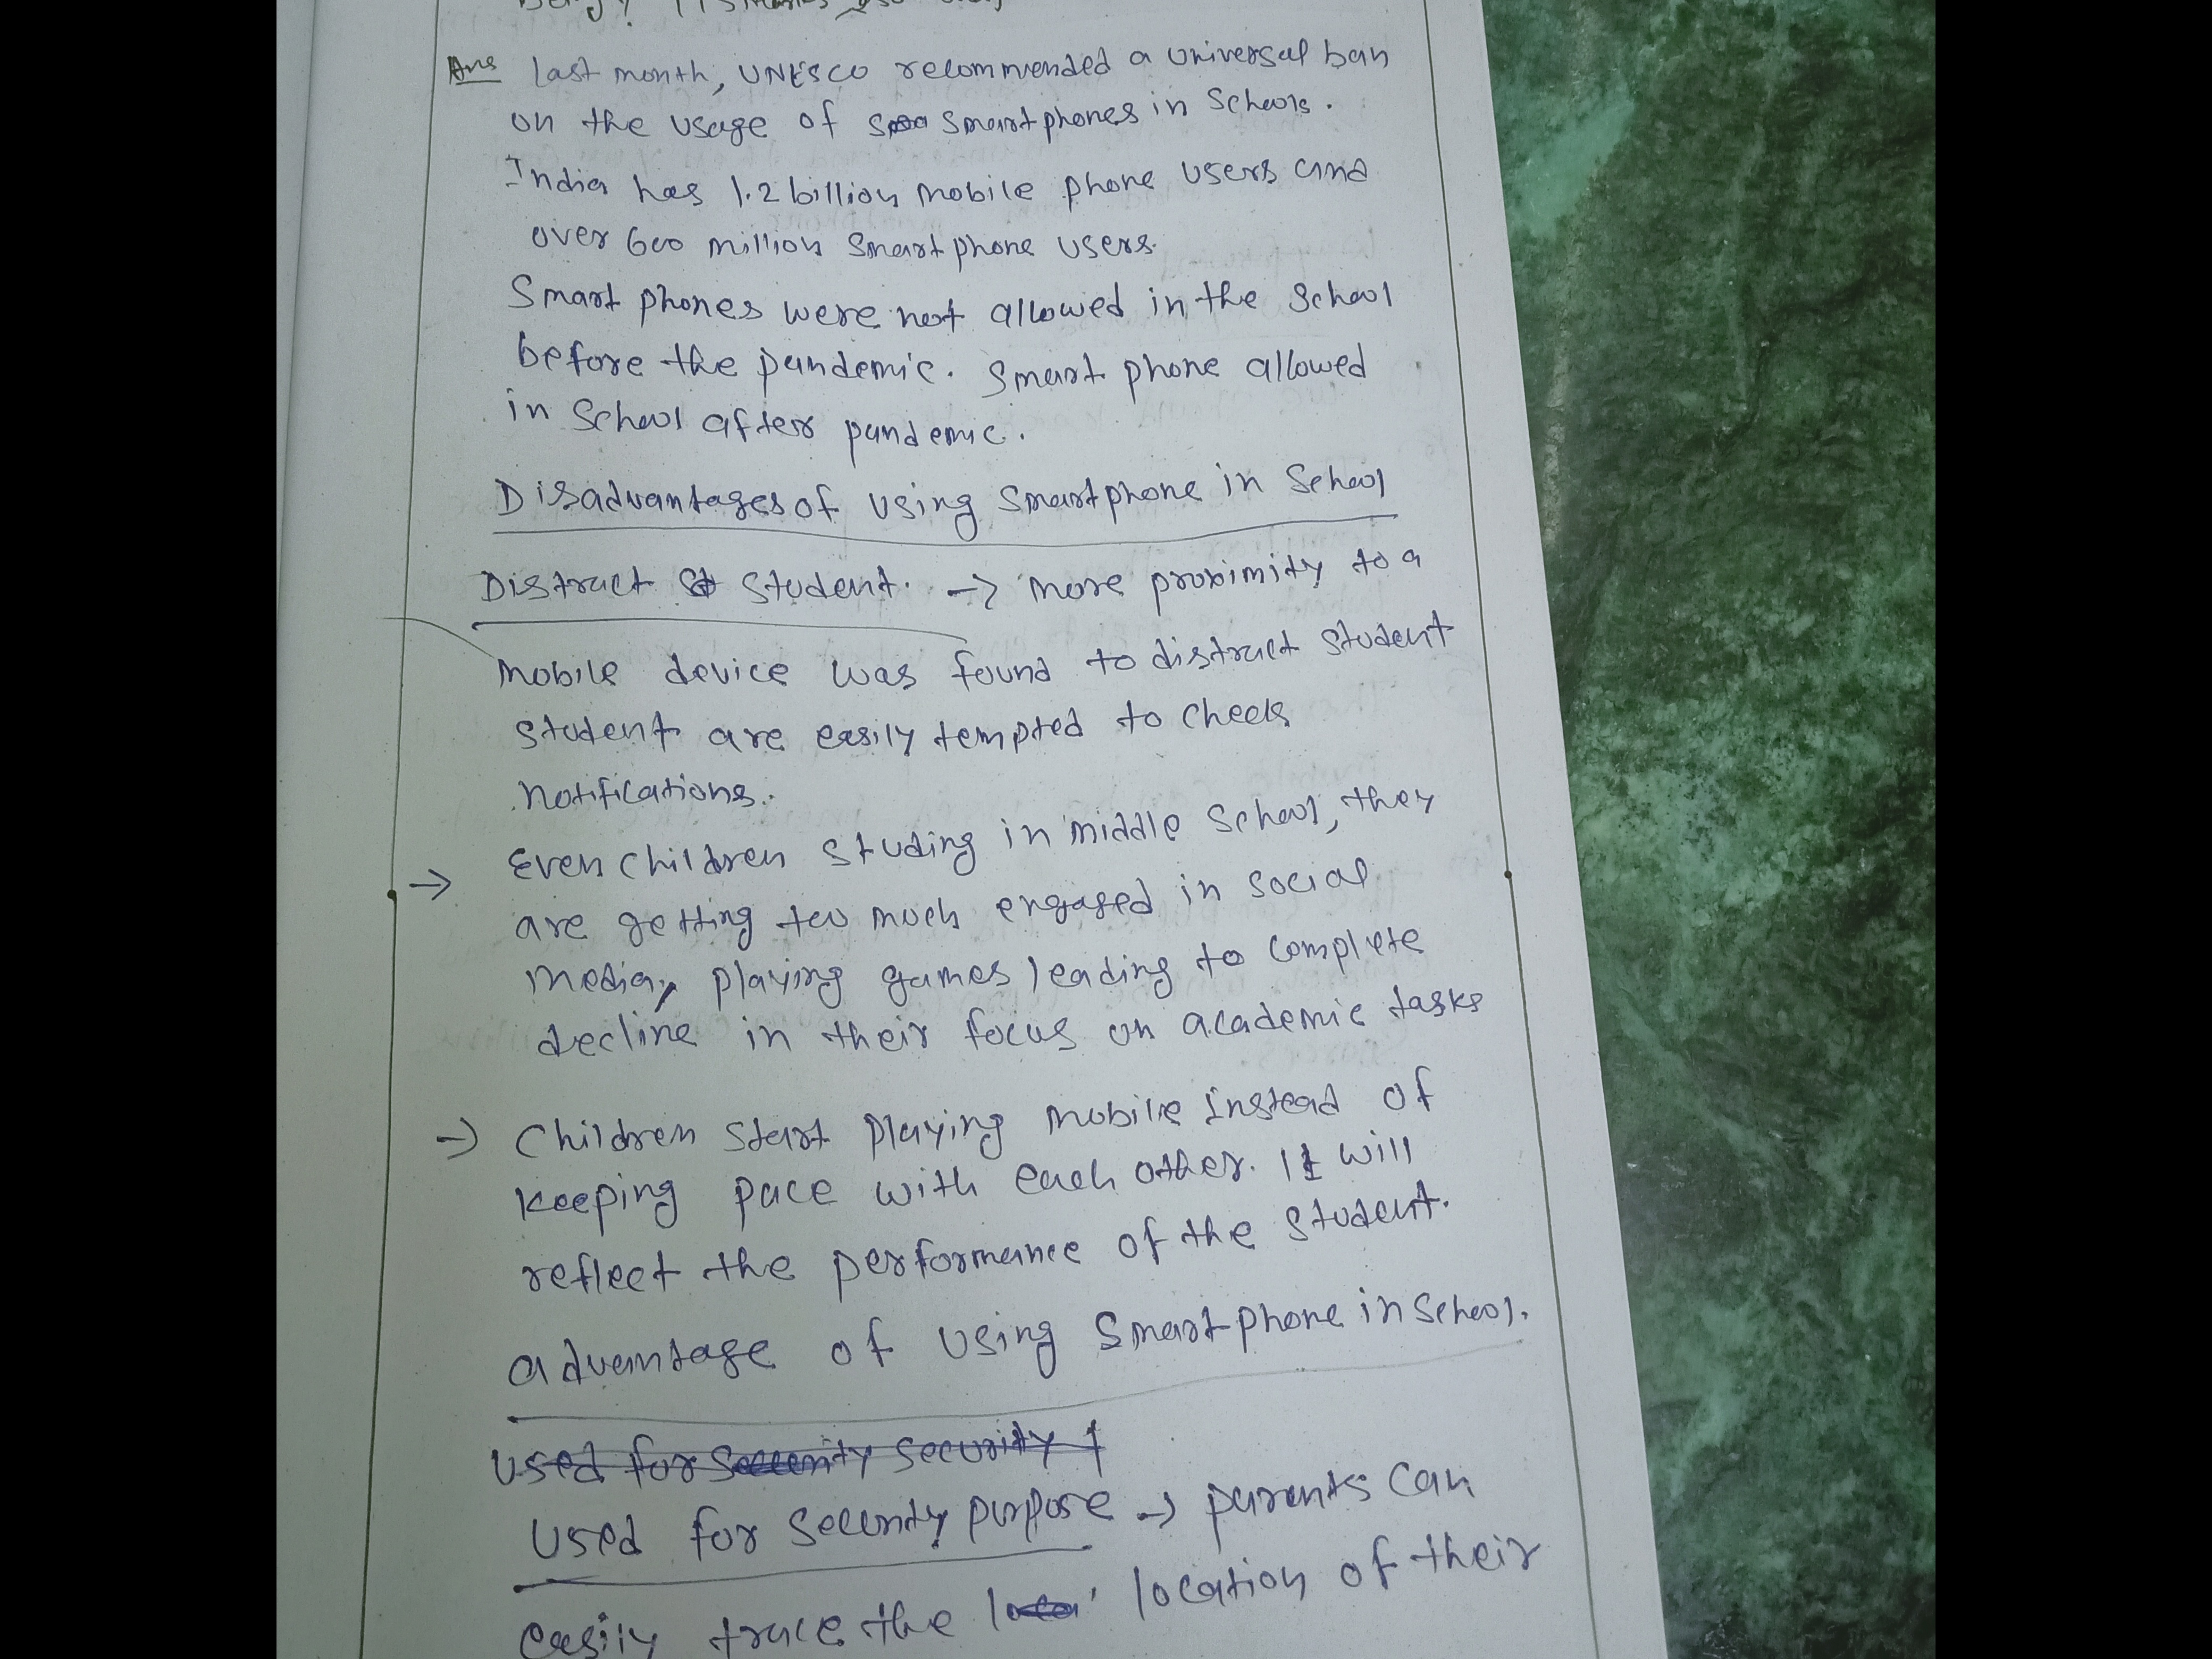 Ans Last month, UNESCO recommended a universal ban
on the usage of smartphones in Schools.
India has 1.2 billion mobile phone users and
over 600 million Smart phone users.
Smart phones were not allowed in the School
before the pandemic. Smart phone allowed
in School after pandemic.
Disadvantages of using Smartphone in School
Distract Student. → more proximity to a
mobile device was found to distract student
student are easily tempted to check
notifications.
→ Even children studing in middle school, they
are getting too much engaged in social
media, playing games leading to complete
decline in their focus on academic tasks
→ Children start playing mobile instead of
keeping pace with each other. It will
reflect the performance of the student.
advantage of using Smart phone in School.
used for security
used for security purpose → parents can
easily trace the location of their